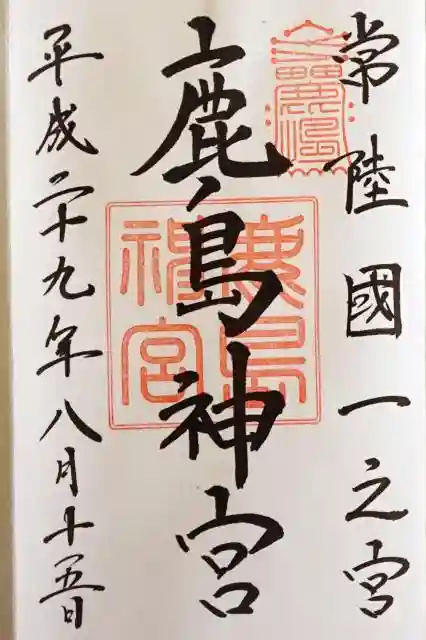 常陸國一之宮
鹿島神宮
鹿島神宮
平成二十九年八月十五日